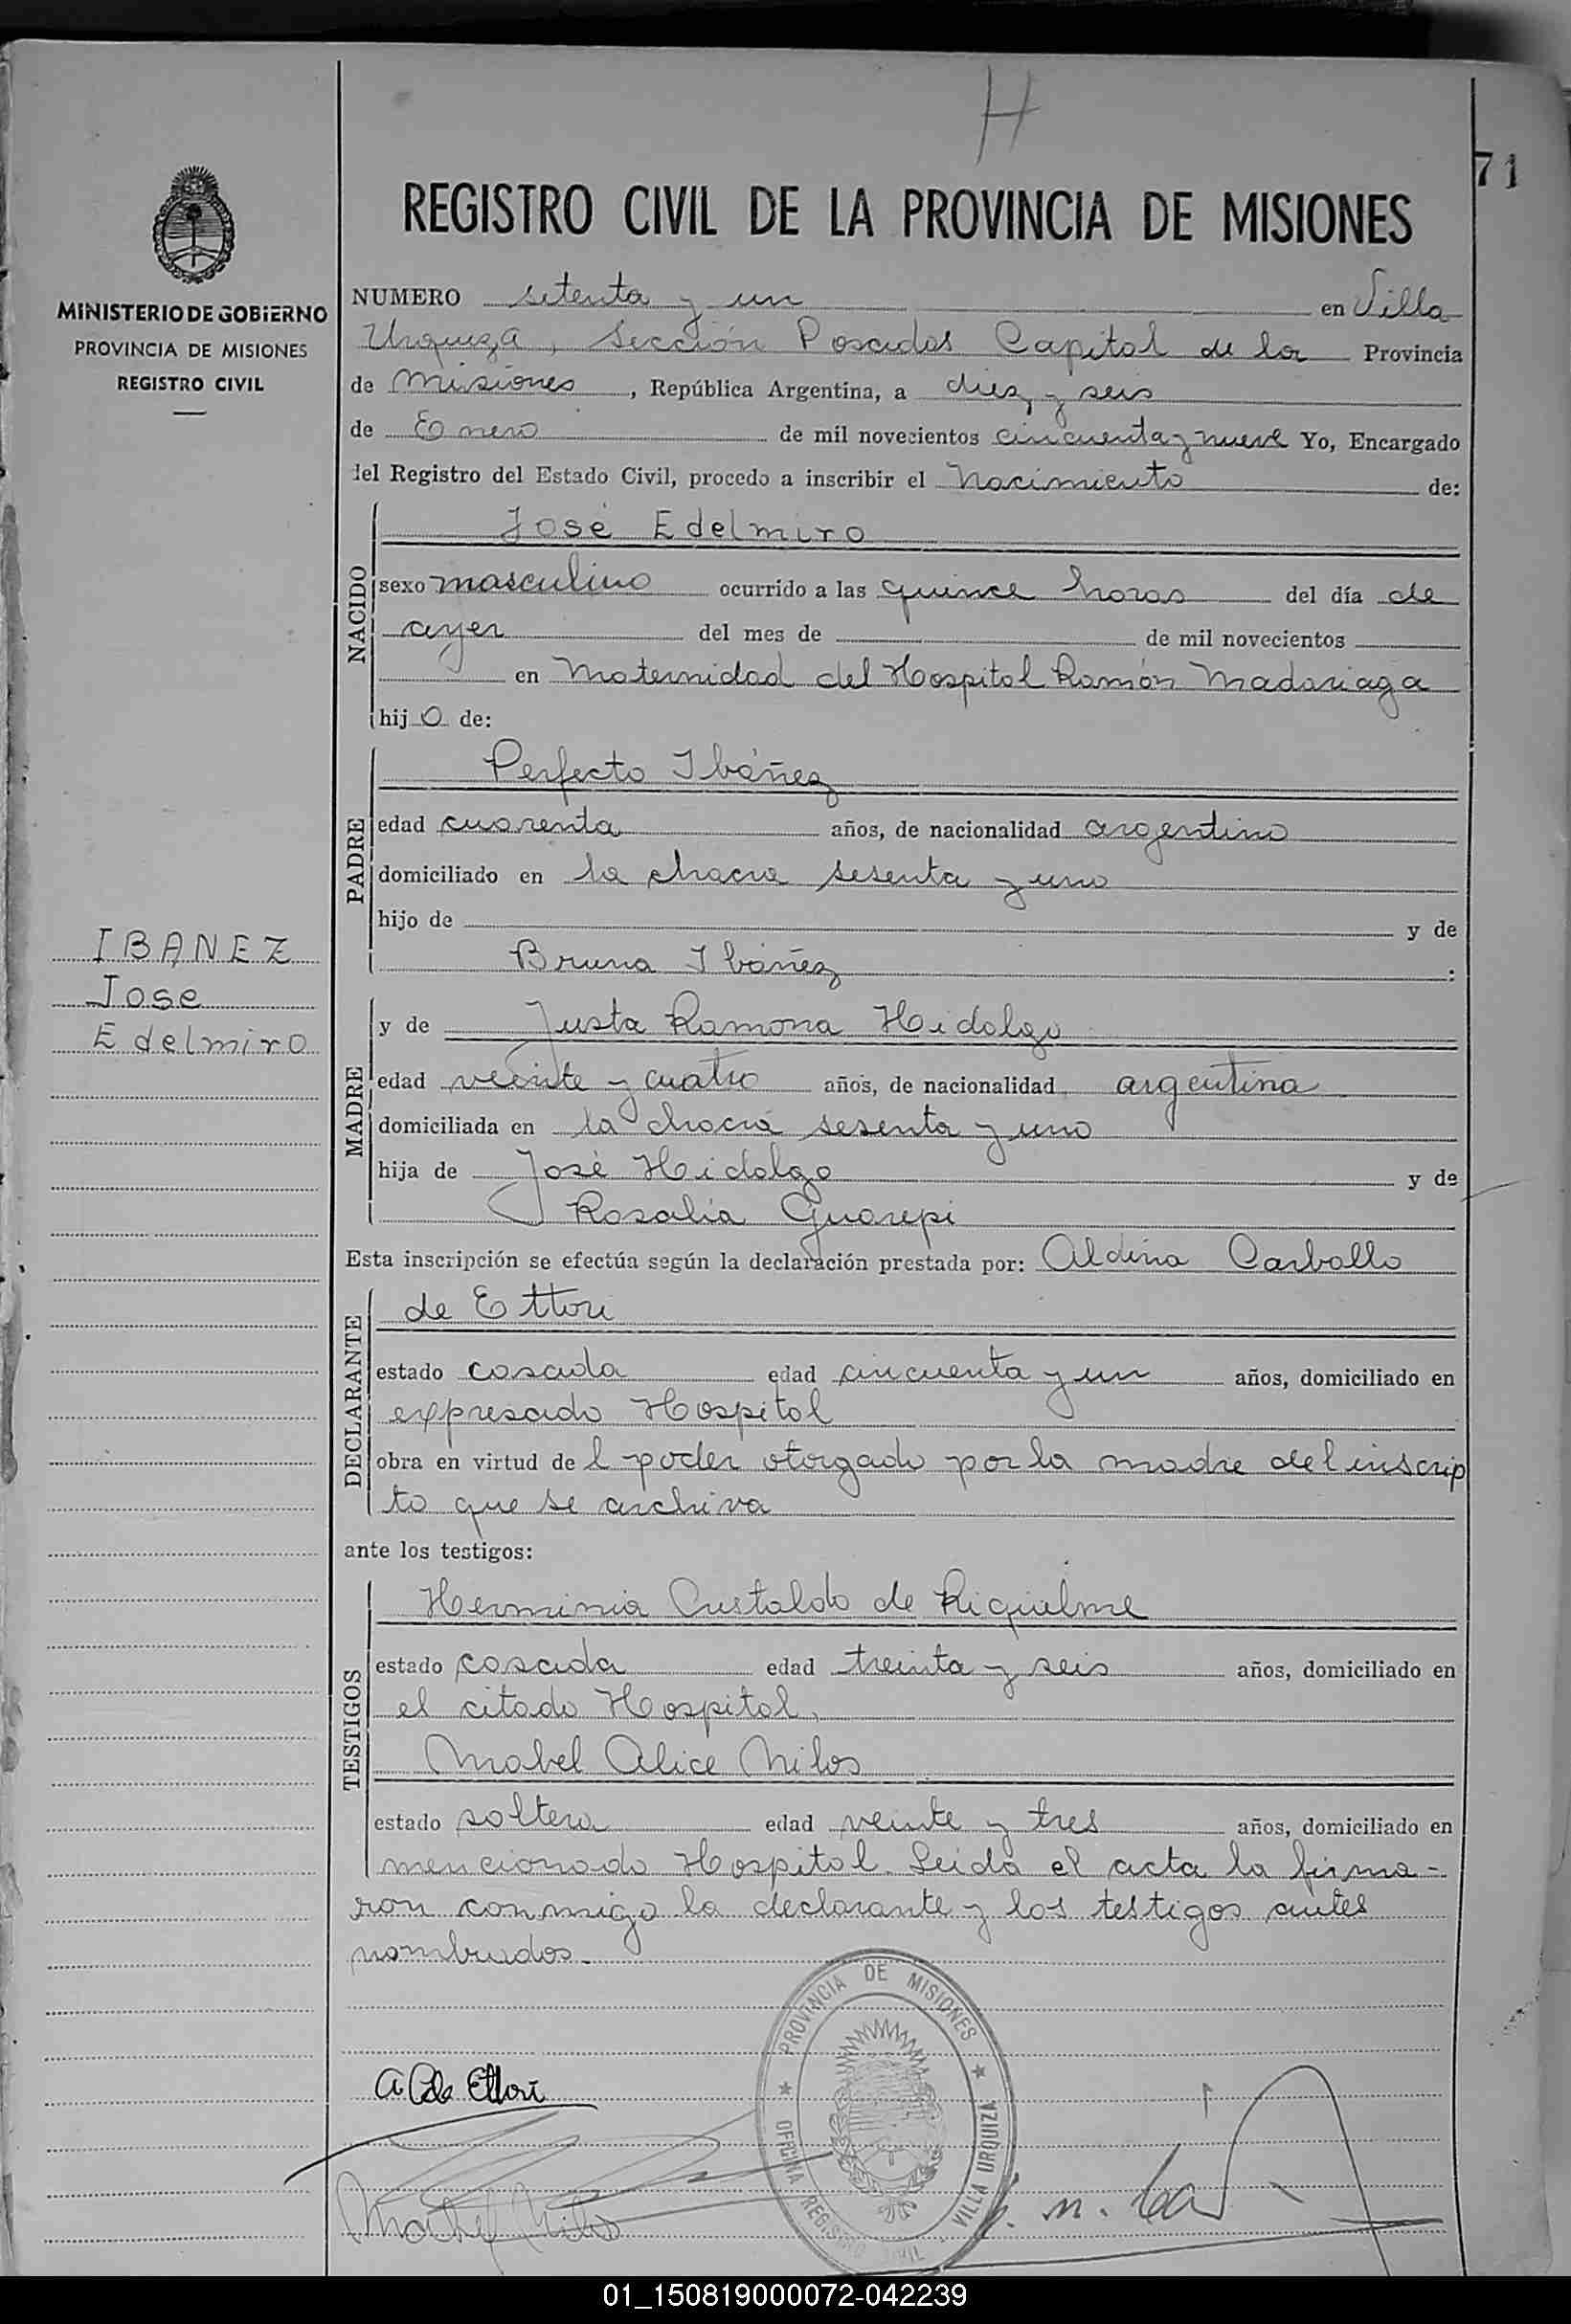 H
71
REGISTRO CIVIL DE LA PROVINCIA DE MISIONES
MINISTERIO DE GOBIERNO
PROVINCIA DE MISIONES
REGISTRO CIVIL
NUMERO setenta y un en Villa
Urquiza, Sección Posadas Capital de la Provincia
de Misiones, República Argentina, a diez y seis
de Enero de mil novecientos cincuenta y nueve Yo, Encargado
del Registro del Estado Civil, procedo a inscribir el Nacimiento de:
NACIDO
José Edelmiro
sexo masculino ocurrido a las quince horas del día de
ayer del mes de de mil novecientos
en Maternidad del Hospital Ramón Madariaga
hijo de:
PADRE
Perfecto Ibáñez
edad cuarenta años, de nacionalidad argentino
domiciliado en la chacra sesenta y uno
hijo de y de
Bruna Ibáñez :
IBANEZ
Jose
Edelmiro
MADRE
y de Justa Ramona Hidalgo
edad veinte y cuatro años, de nacionalidad argentina
domiciliada en la chacra sesenta y uno
hija de José Hidalgo y de
Rosalia Guarepi
Esta inscripción se efectúa según la declaración prestada por: Aldina Carballo
DECLARANTE
de Ettori
estado casada edad cincuenta y un años, domiciliado en
expresado Hospital
obra en virtud del poder otorgado por la madre del inscrip
to que se archiva
ante los testigos:
TESTIGOS
Herminia Custaldo de Riquelme
estado casada edad treinta y seis años, domiciliado en
el citado Hospital,
Mabel Alice Milos
estado soltera edad veinte y tres años, domiciliado en
mencionado Hospital. Leida el acta la firma-
ron conmigo la declarante y los testigos antes
nombrados.-
PROVINCIA DE MISIONES
OFICINA REGISTRO CIVIL
VILLA URQUIZA
A C de Ettori
Mabel Milos
01_150819000072-042239